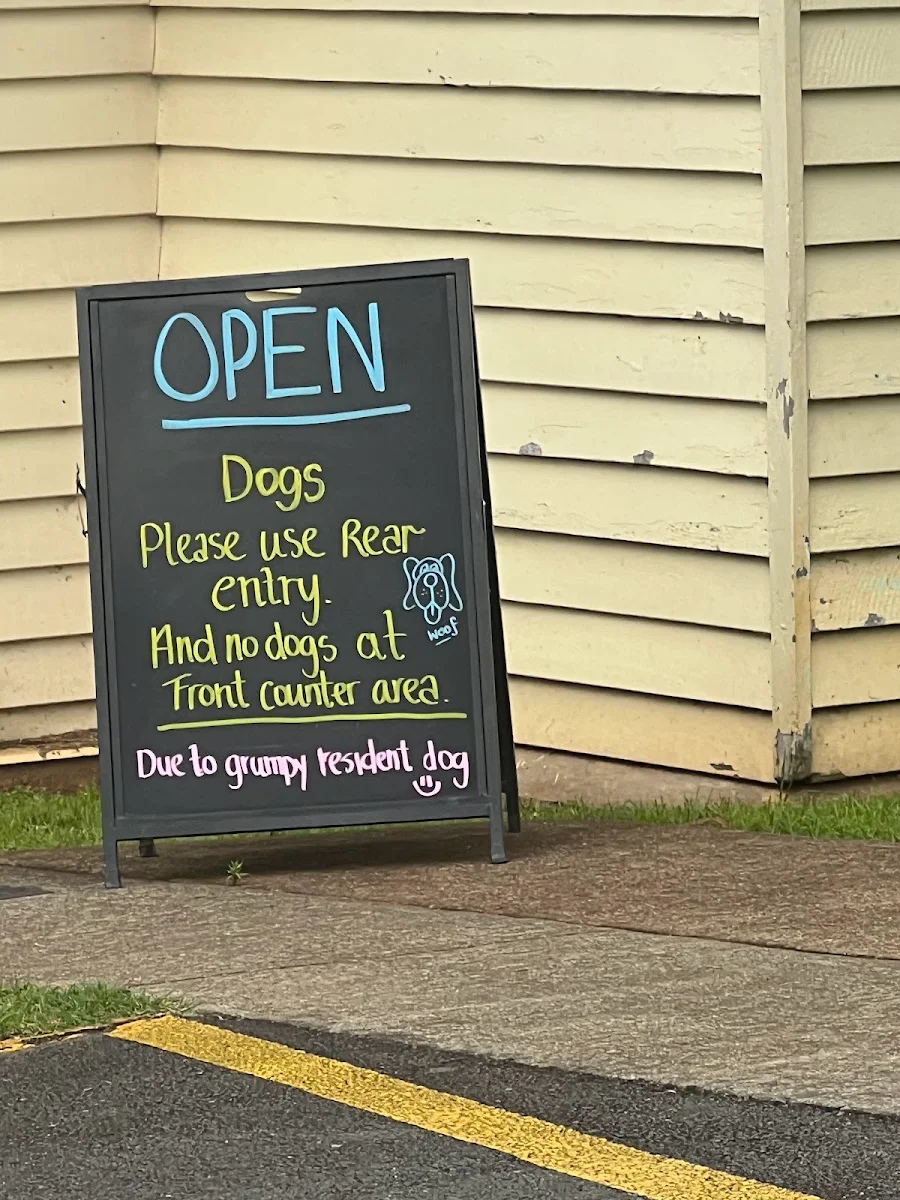 OPEN
Dogs
Please use Rear
entry.
woof
And no dogs at
Front counter area.
Due to grumpy resident dog